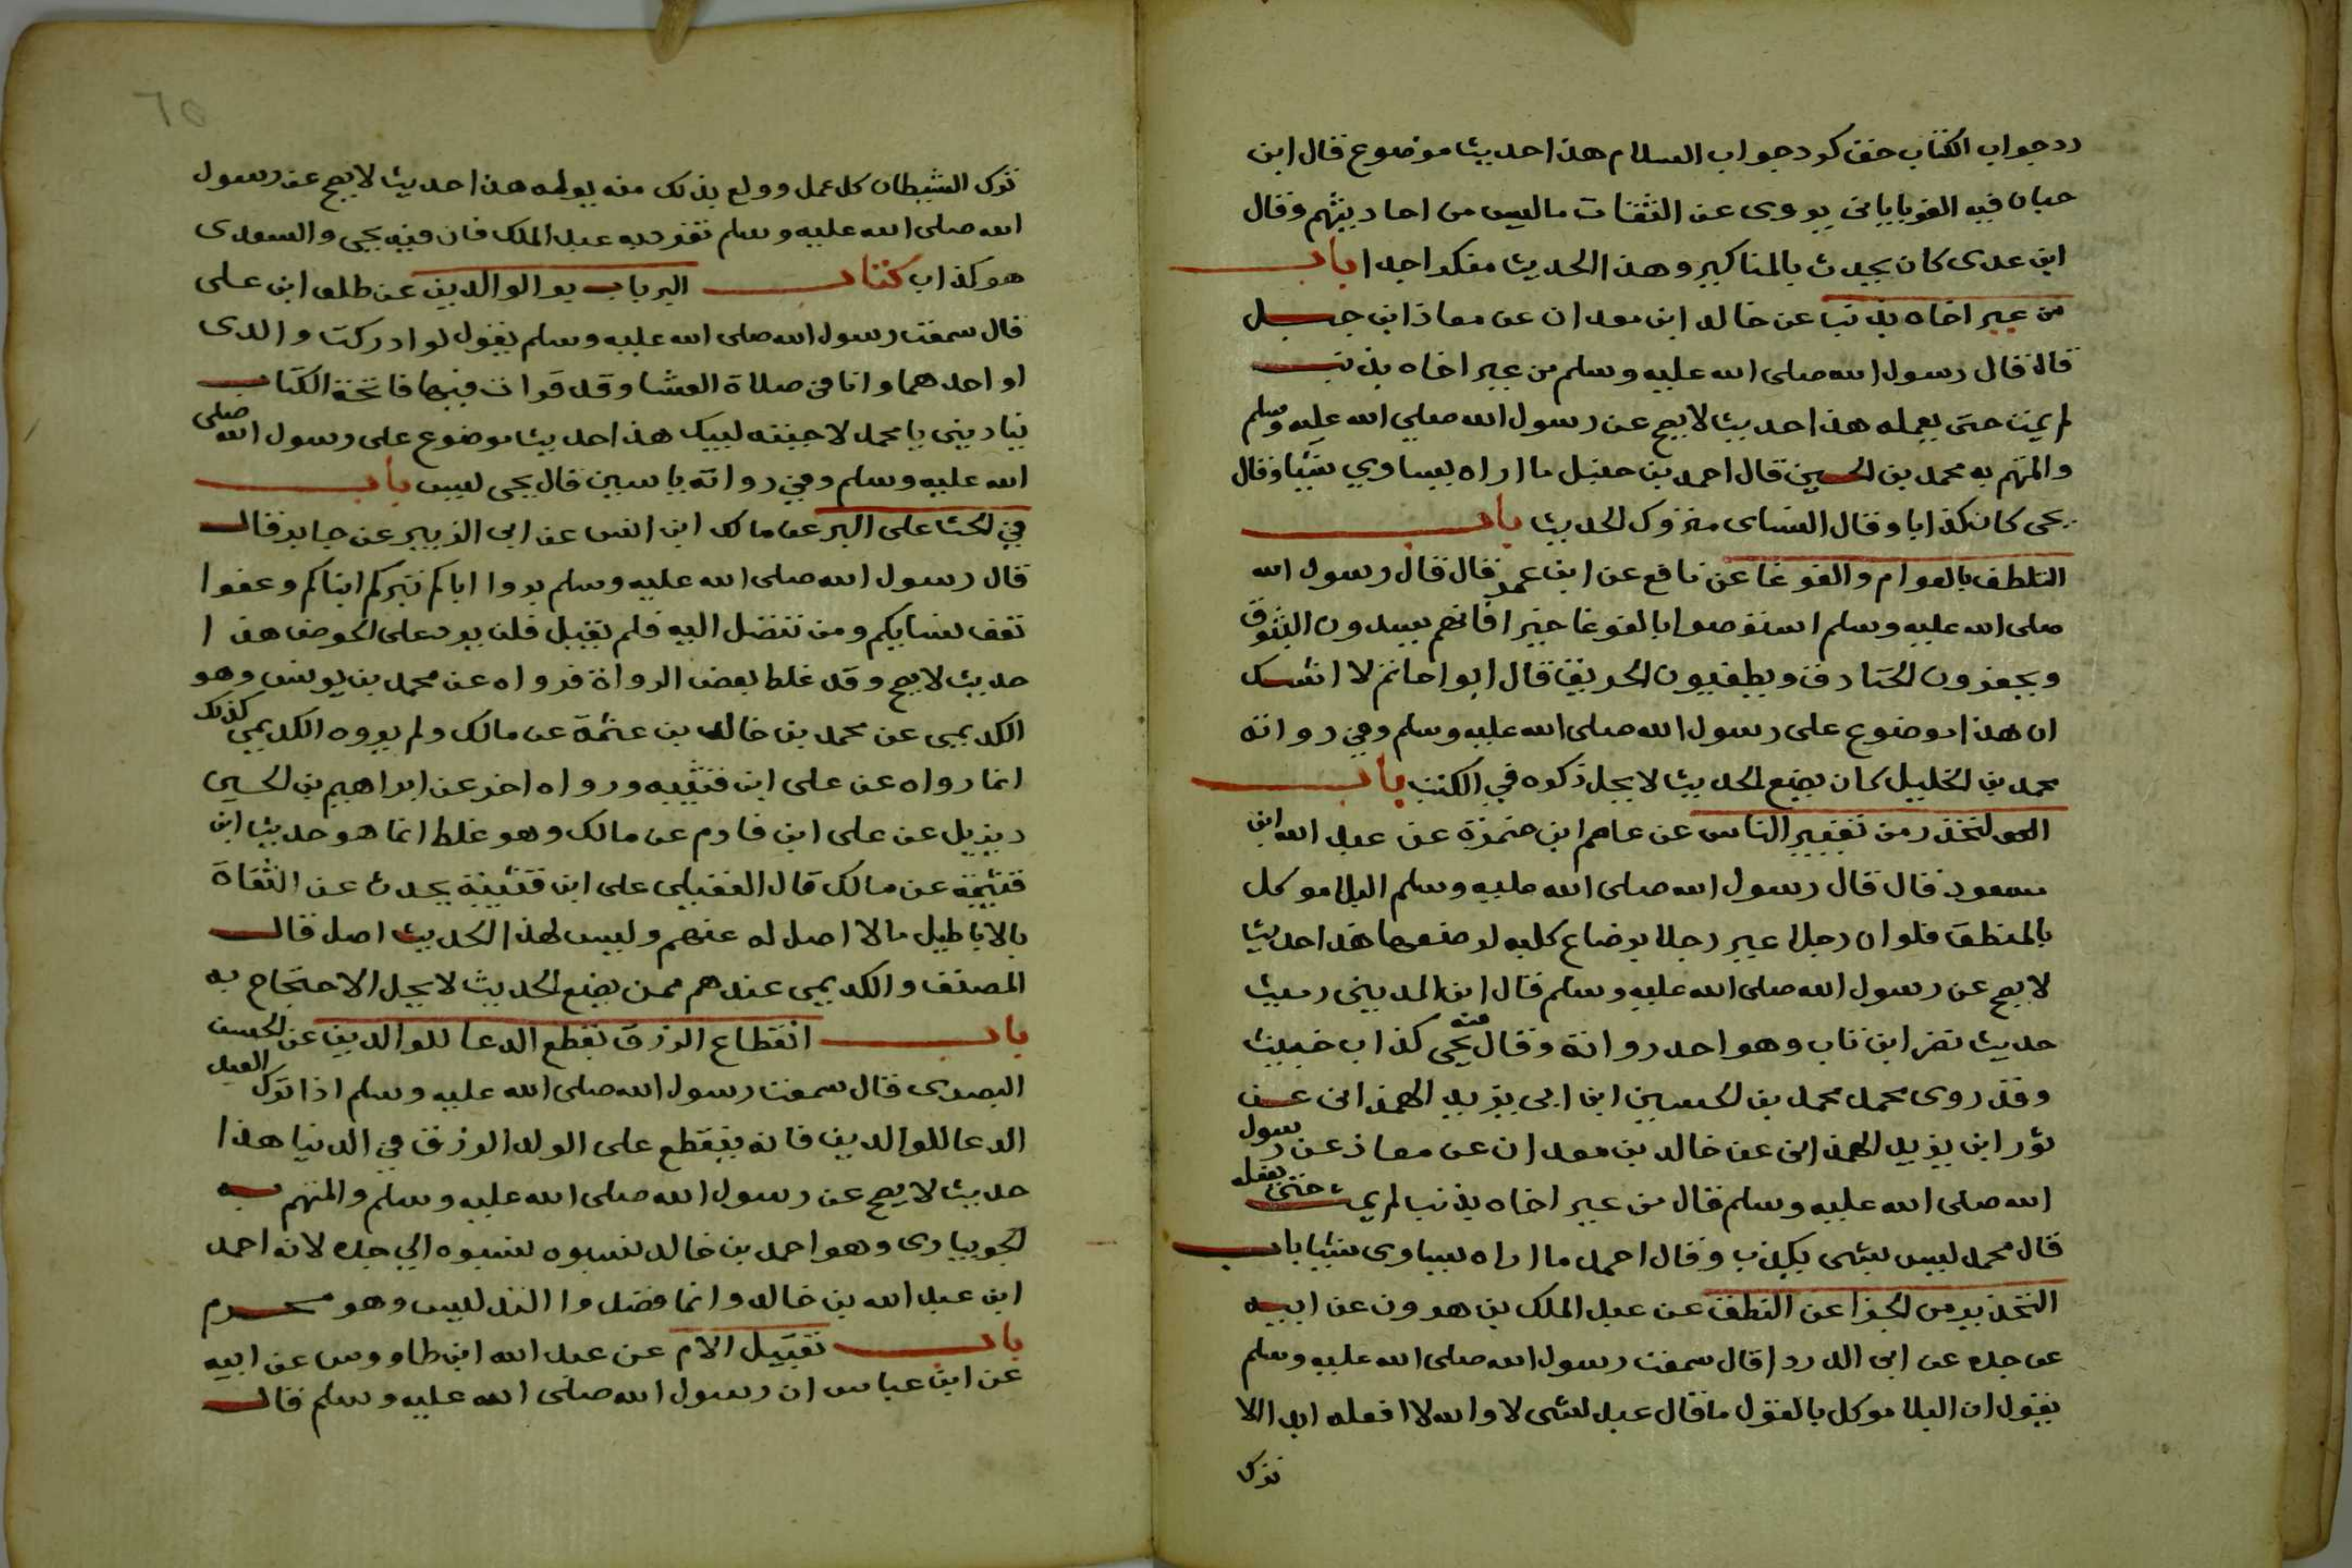 رد جواب الكتاب حق كرد جواب السلام هذا حديث موضوع قال ابن
حبان فيه الفرياباني يروى عن الثقات ما ليس من احاديثهم وقال
ابن عدى كان يحدث بالمناكير وهذا الحديث منكر جدا باب
من عير اخاه بذنب عن خالد ابن معدان عن معاذ ابن جبل
قال قال رسول الله صلى الله عليه وسلم من عير اخاه بذنب
لم يمت حتى يعمله هذا حديث لا يصح عن رسول الله صلى الله عليه وسلم
والمتهم به محمد بن الحسين قال احمد بن حنبل ما اراه يساوي شيئا وقال
يحى كان كذابا وقال النساى متروك الحديث باب
التلطف بالعوام والغوغا عن نافع عن ابن عمر قال قال رسول الله
صلى الله عليه وسلم استوصوا بالغوغا خيرا فانهم يسدون البثوق
ويحفرون الخنادق ويطفيون الحريق قال ابوا حاتم لا اشك
ان هذا موضوع على رسول الله صلى الله عليه وسلم وفي رواته
محمد بن الخليل كان يضع الحديث لا يحل ذكره في الكتب باب
التحذر من تعيير الناس عن عاصم ابن ضمرة عن عبد الله ابن
مسعود قال قال رسول الله صلى الله عليه وسلم البلا موكل
بالمنطق فلو ان رجلا عير رجلا برضاع كلبه لرضعها هذا حديث
لا يصح عن رسول الله صلى الله عليه وسلم قال ابن المدينى رميت
حديث نصر ابن باب وهو احد رواته وقال يحيى عنه كذاب خبيث
وقد روى محمد محمد بن الحسين ابن ابى يزيد الهمذانى عن
ثور ابن يزيد الهمذانى عن خالد بن معدان عن معاذ عن رسول
الله صلى الله عليه وسلم قال من عير اخاه بذنب لم يمت حتى يفعله
قال محمد ليس بشى يكذب وقال احمد ما اراه يساوى شيئا باب
التحذير من الجزا عن النطق عن عبد الملك بن هرون عن ابيه
عن جده عن ابى الدردا قال سمعت رسول الله صلى الله عليه وسلم
يقول ان البلا موكل بالقول ما قال عبد لشى لا والله لا افعله ابدا الا
ترك
٦٥
ترك الشيطان كل عمل وولع بذلك منه يولمه هذا حديث لا يصح عن رسول
الله صلى الله عليه وسلم تفرد به عبد الملك قال فيه يحيى والسعدى
هو كذاب كتاب البر باب بر الوالدين عن طلق ابن على
قال سمعت رسول الله صلى الله عليه وسلم يقول لو ادركت والدى
او احدهما وانا في صلاة العشا وقد قرات فيها فاتحة الكتاب
ينادينى يا محمد لاجبته لبيك هذا حديث موضوع على رسول الله صلى
الله عليه وسلم وفي رواته ياسين قال يحى ليس باب
في الحث على البر عن مالك ابن انس عن ابى الزبير عن جابر قال
قال رسول الله صلى الله عليه وسلم بروا اباكم تبركم ابناكم وعفوا
تعف نسايكم ومن تنضل اليه فلم يقبل فلن يرد على الحوض هذا
حديث لا يصح وقد غلط بعض الرواة فرواه عن محمد بن يونس وهو
الكديمى عن محمد بن خالد بن عثمة عن مالك ولم يروه الكديمي كذلك
انما رواه عن على ابن قتيبه ورواه اخر عن ابراهيم بن الحسين
ديزيل عن على ابن قادم عن مالك وهو غلط انما هو حديث ابن
قتيبة عن مالك قال العقيلى على ابن قتيبة يحدث عن الثقاة
بالاباطيل مالا اصل له عنهم وليس لهذا الحديث اصل قال
المصنف والكديمى عندهم ممن يضع الحديث لا يحل الاحتجاج به
باب انقطاع الرزق بقطع الدعا للوالدين عن الحسن
البصرى قال سمعت رسول الله صلى الله عليه وسلم اذا ترك العبد
الدعا للوالدين فانه ينقطع على الولد الرزق في الدنيا هذا
حديث لا يصح عن رسول الله صلى الله عليه وسلم والمتهم به
الجويبارى وهو احمد بن خالد نسبوه نسبوه الي جده لانه احمد
ابن عبد الله بن خالد وانما قصدوا التدليس وهو محرم
باب تقبيل الام عن عبد الله ابن طاووس عن ابيه
عن ابن عباس ان رسول الله صلى الله عليه وسلم قال